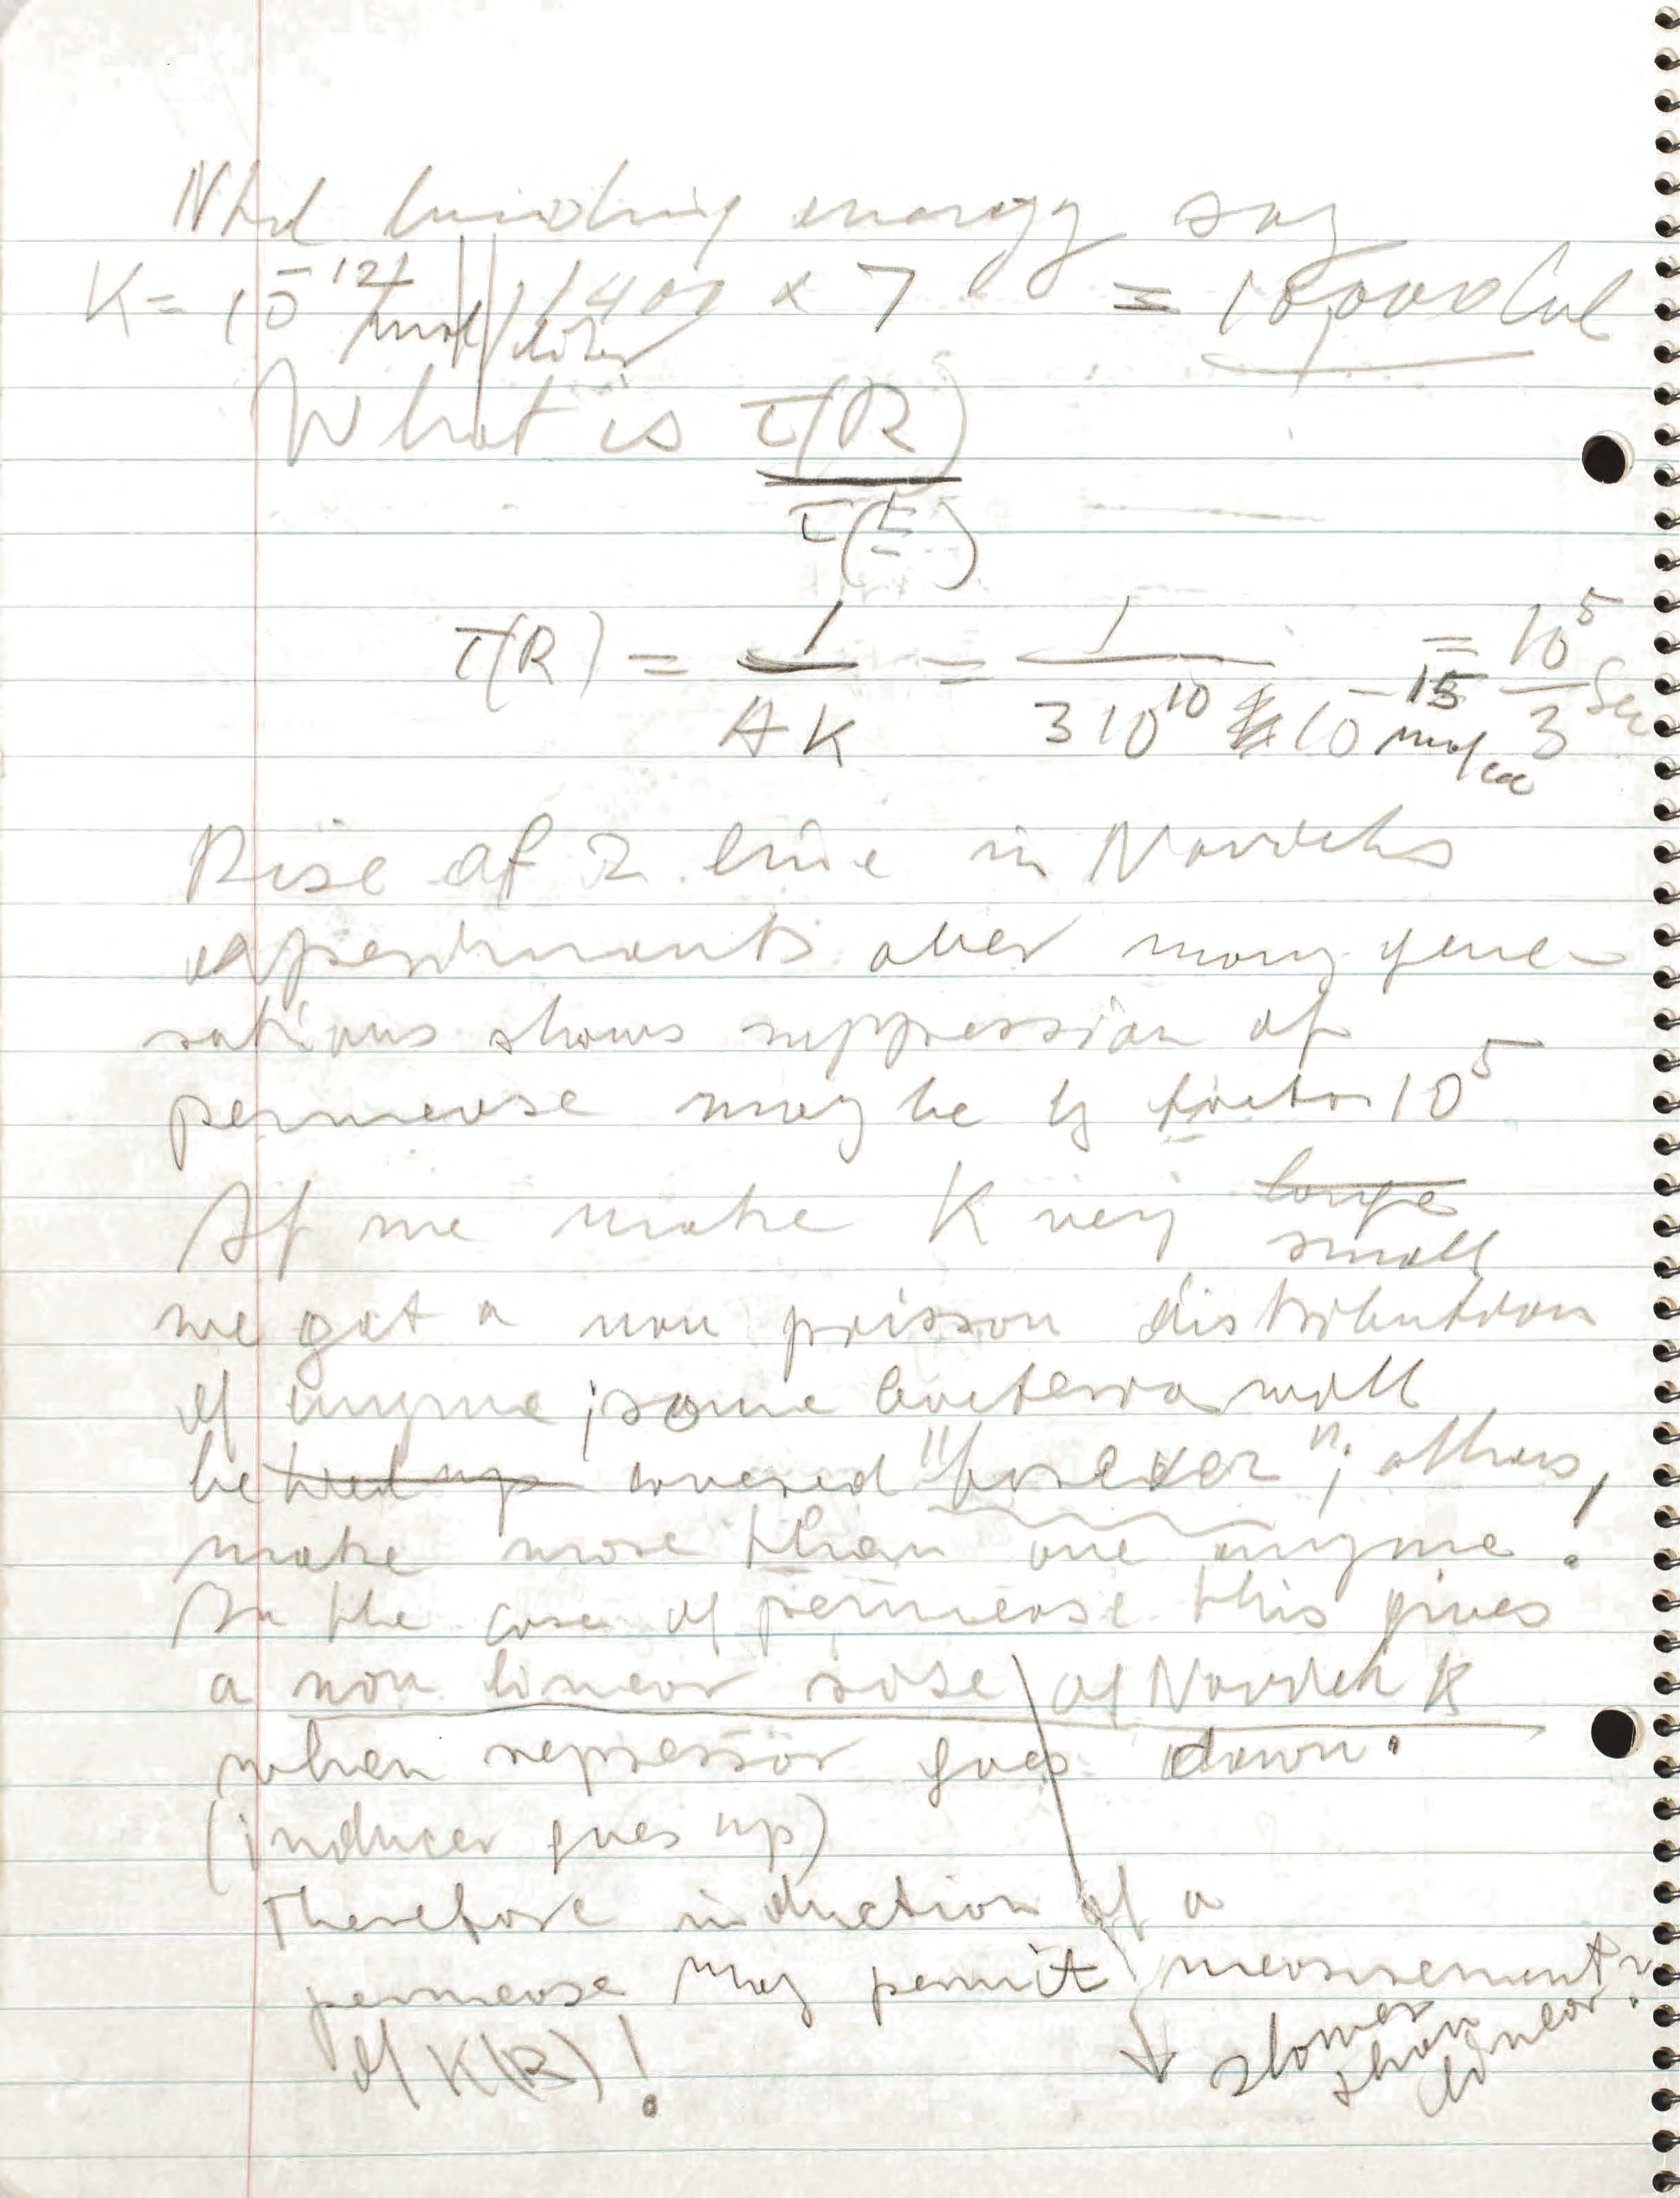 binding energy say
K = 10^-12 mol/liter 1400 × 7 = 10,000 Cal
What is τ(R)
τ(E)
τ(R) = 1/AK = 1/(3 10^10 10^-15 mol/cc) = 10^5/3 Sec
Rise of 2 line in Novicks
experiments over many gene-
rations shows suppression of
permease may be by factor 10^5
If we make K very ~~large~~
small
we get a non poisson distribution
of enzyme; some bacteria will
be ~~tied up~~ covered "forever"; others,
make more than one enzyme!
In the case of permease this gives
a non linear rise of Novick K
when repressor goes down.
(inducer goes up)
Therefore induction of a
permease may permit measurement
of K(R)!
slower
than
linear.